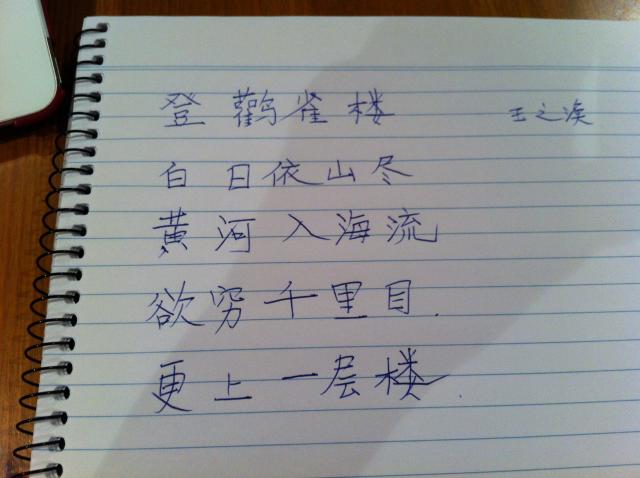 登鹳雀楼 王之涣
白日依山尽
黄河入海流
欲穷千里目.
更上一层楼.